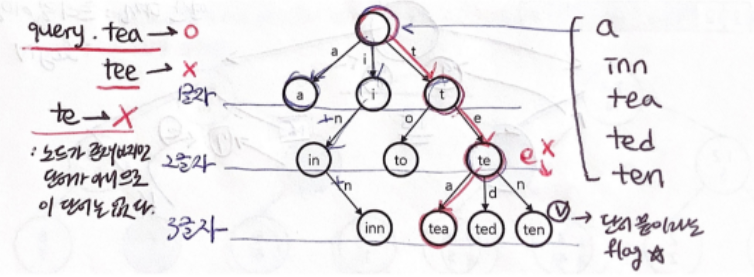 query. tea → O
tee → X
te → X
: 노드가 존재하지만
단어가 아니므로
이 단어는 없다.
1글자
2글자
3글자
a
i
t
a
i
t
+n
o
e
in
to
te
e X
+n
a
d
n
inn
tea
ted
ten
V → 단어 끝이라는
flag ☆
a
inn
tea
ted
ten